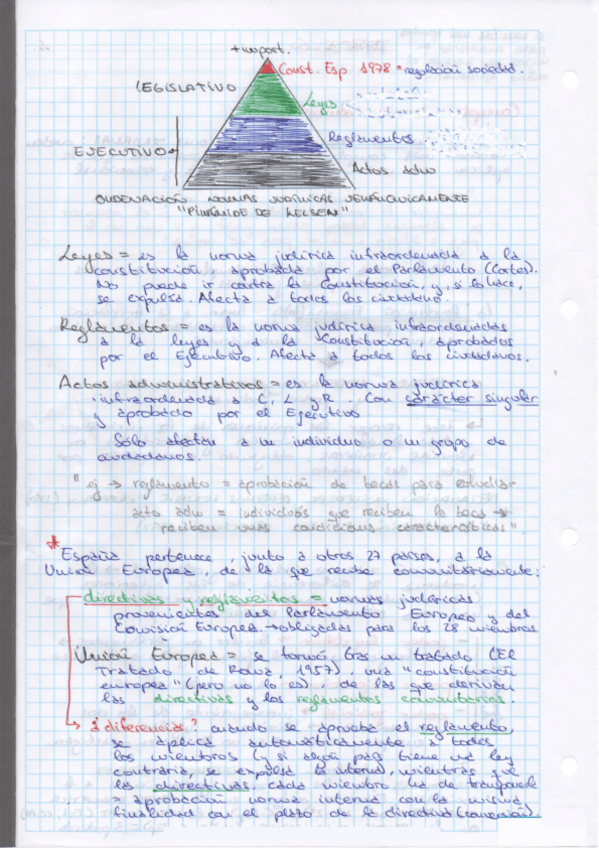 + import.
Const. Esp 1978 = regulación sociedad.
LEGISLATIVO
Leyes
Reglamentos
EJECUTIVO
Actos adm
ORDENACIÓN NORMAS JURÍDICAS JERÁRQUICAMENTE
"PIRÁMIDE DE KELSEN"
Leyes = es la norma jurídica infraordenada a la
constitución, aprobada por el Parlamento (Cortes).
No puede ir contra la Constitución, y, si lo hace,
se expulsa. Afecta a todos los ciudadanos.
Reglamentos = es la norma jurídica infraordenadas
a la leyes y a la Constitución, aprobados
por el Ejecutivo. Afecta a todos los ciudadanos.
Actos administrativos = es la norma jurídica
infraordenada a C, L y R. Con carácter singular
y aprobado por el Ejecutivo
Sólo afectan a un individuo o un grupo de
ciudadanos.
"ej → reglamento = aprobación de becas para estudiar
acto adm = individuos que reciben la beca →
reciben unas condiciones características".
* España pertenece, junto a otros 27 países, a la
Unión Europea, de la que recibe comunitariamente:
directivas y reglamentos = normas jurídicas
provenientes del Parlamento Europeo y del
Comisión Europea. → obligadas para los 28 miembros
Unión Europea = se formó tras un tratado (El
Tratado de Roma, 1957), una "constitución
europea" (pero no lo es), de las que derivan
las directivas y los reglamentos comunitarios.
¿diferencias? cuando se aprueba el reglamento,
se aplica automáticamente a todos
los miembros (y si algún país tiene una ley
contraria, se expulsa la interna), mientras que
las directivas, cada miembro ha de transponerla
= aprobación norma interna con la misma
finalidad con el plazo de la directiva